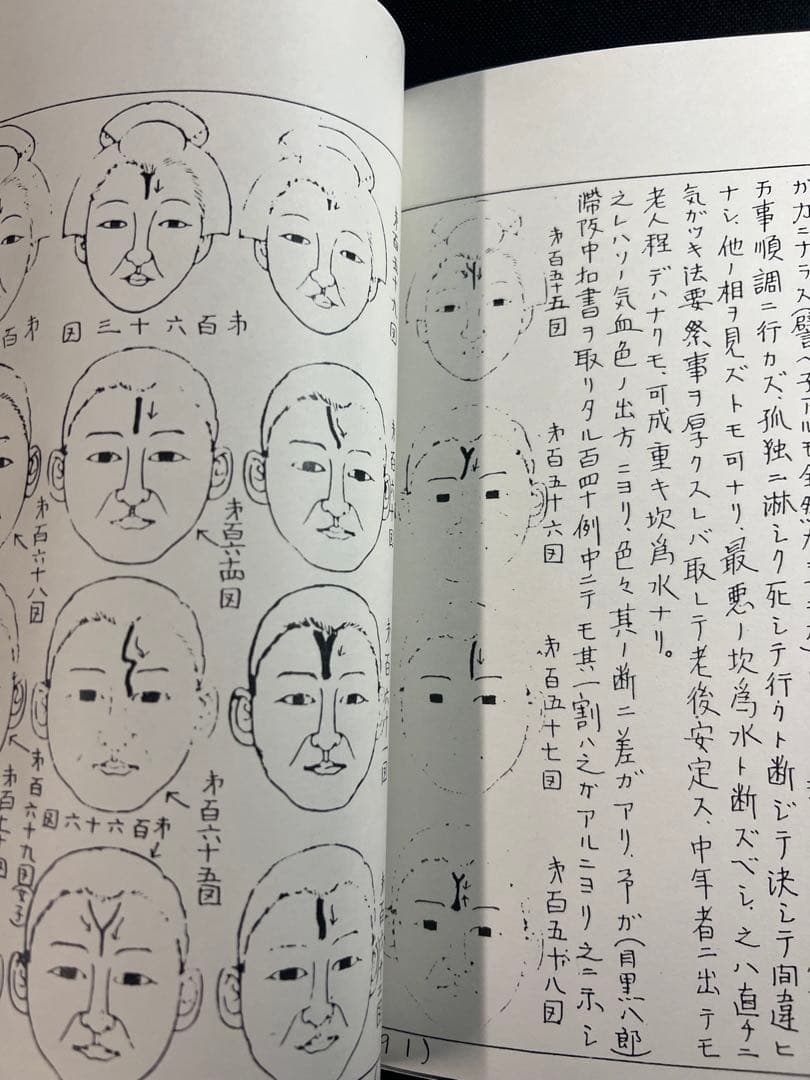 万事順調ニ行カズ、孤独ニ淋シク死シテ行クト断ジテ決シテ間違ヒ
ナシ、他ノ相ヲ見ズトモ可ナリ、最悪ノ坎為水ト断ズベシ、之ハ直チニ
気ガツキ法要祭事ヲ厚クスレバ取レテ老後、安定ス、中年者ニ出テモ
老人程デハナクモ、可成重キ坎為水ナリ。
之レハソノ気血色ノ出方ニヨリ、色々其ノ断ニ差ガアリ、予ガ(目黒八郎)
滞阪中扣書ヲ取リタル百四十例中ニテモ其一割ハ之ガアルニヨリ之ニ示シ
㐧百五十五図
㐧百五十六図
㐧百五十七図
㐧百五十八図
㐧百五十九図
㐧百六十三図
㐧百六十四図
㐧百六十八図
㐧百六十五図
㐧百六十六図
㐧百六十九図(女子)
91)